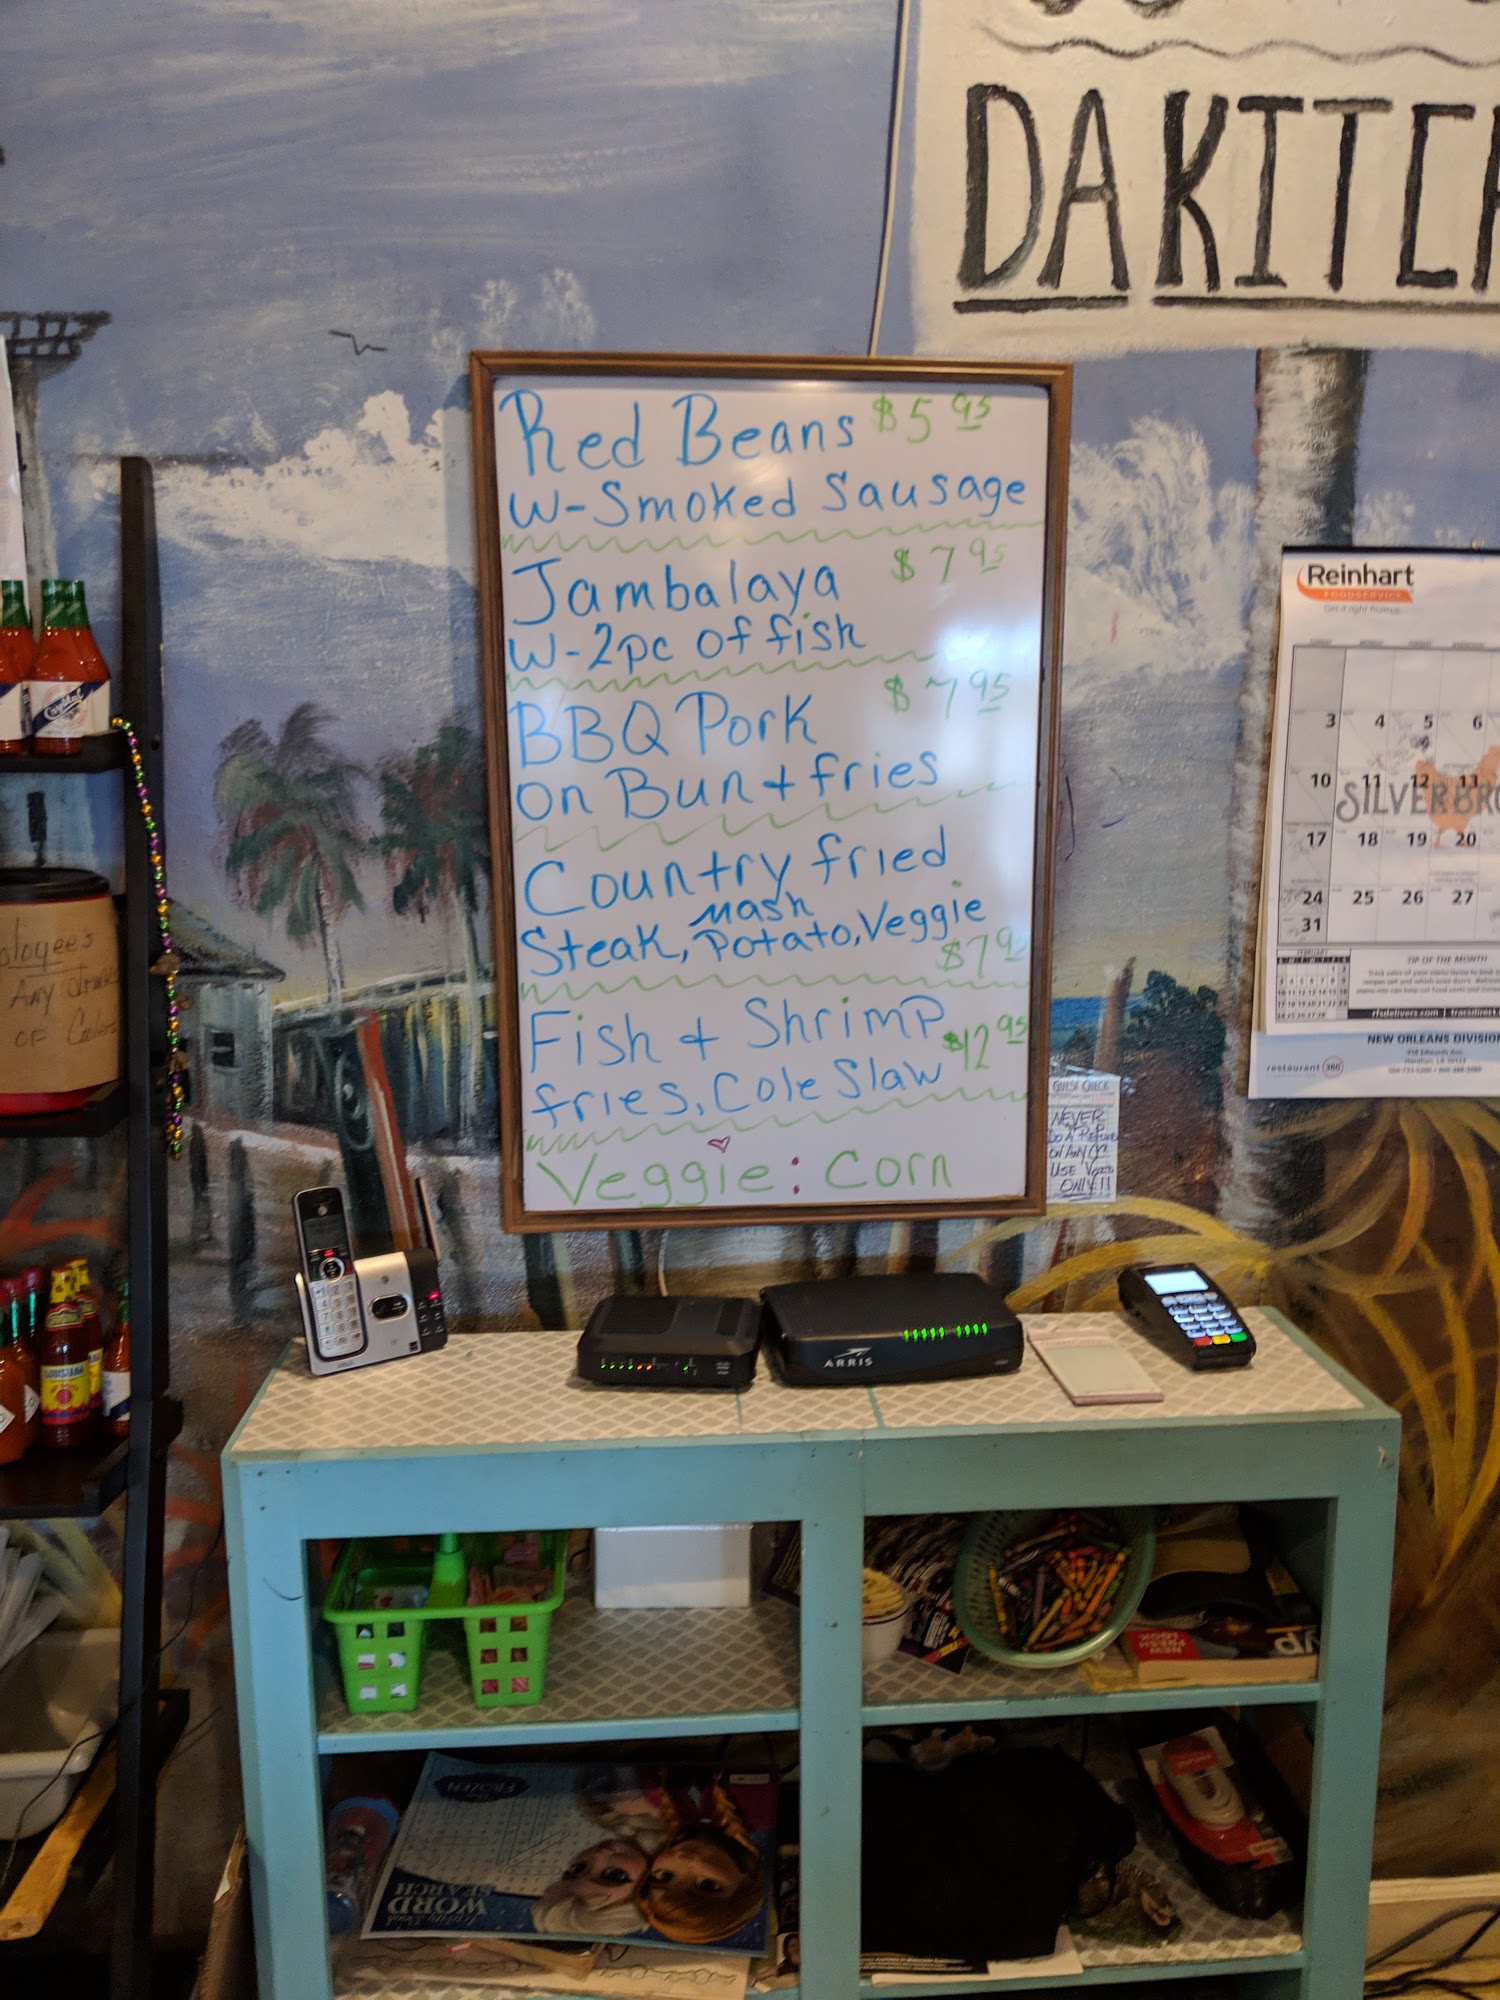 DA KITCH
Red Beans $5 95
W-Smoked Sausage
Jambalaya $7 95
W-2pc of fish
BBQ Pork $7 95
on Bun + fries
Country fried
Steak, Mash Potato, Veggie
$7 9
Fish + Shrimp
$12 95
fries, Cole Slaw
Veggie: Corn
Reinhart
FOODSERVICE
3 4 5 6
10 11 12 13
SILVERBRO
17 18 19 20
24 25 26 27
31
FEBRUARY
TIP OF THE MONTH
rfsdelivers.com
NEW ORLEANS DIVISION
restaurant 360
GUEST CHECK
NEVER
Do A Refund
on Any CC
USE Void
ONLY!!
Crystal
ployee's
Any drink
OF
LOUISIANA
ARRIS
NEW
FRESH
LOOK
FROZEN
WORD
SEARCH